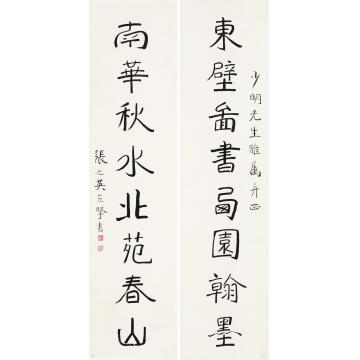 東壁啚書卥園翰墨
少明先生雅属并正
南華秋水北苑春山
張之英左書